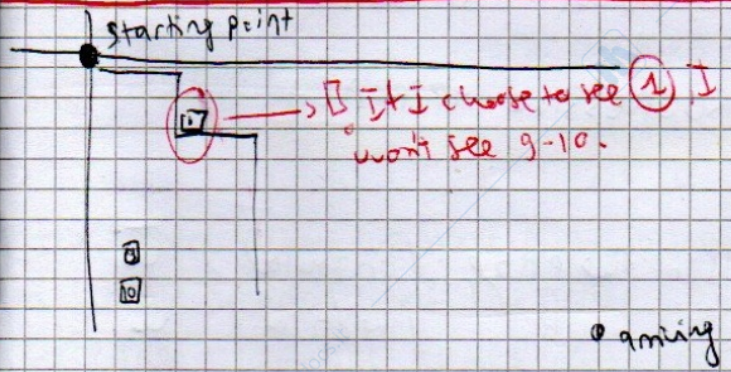 starting point
If I choose to see 1, I
won't see 9-10.
9
10
arriving